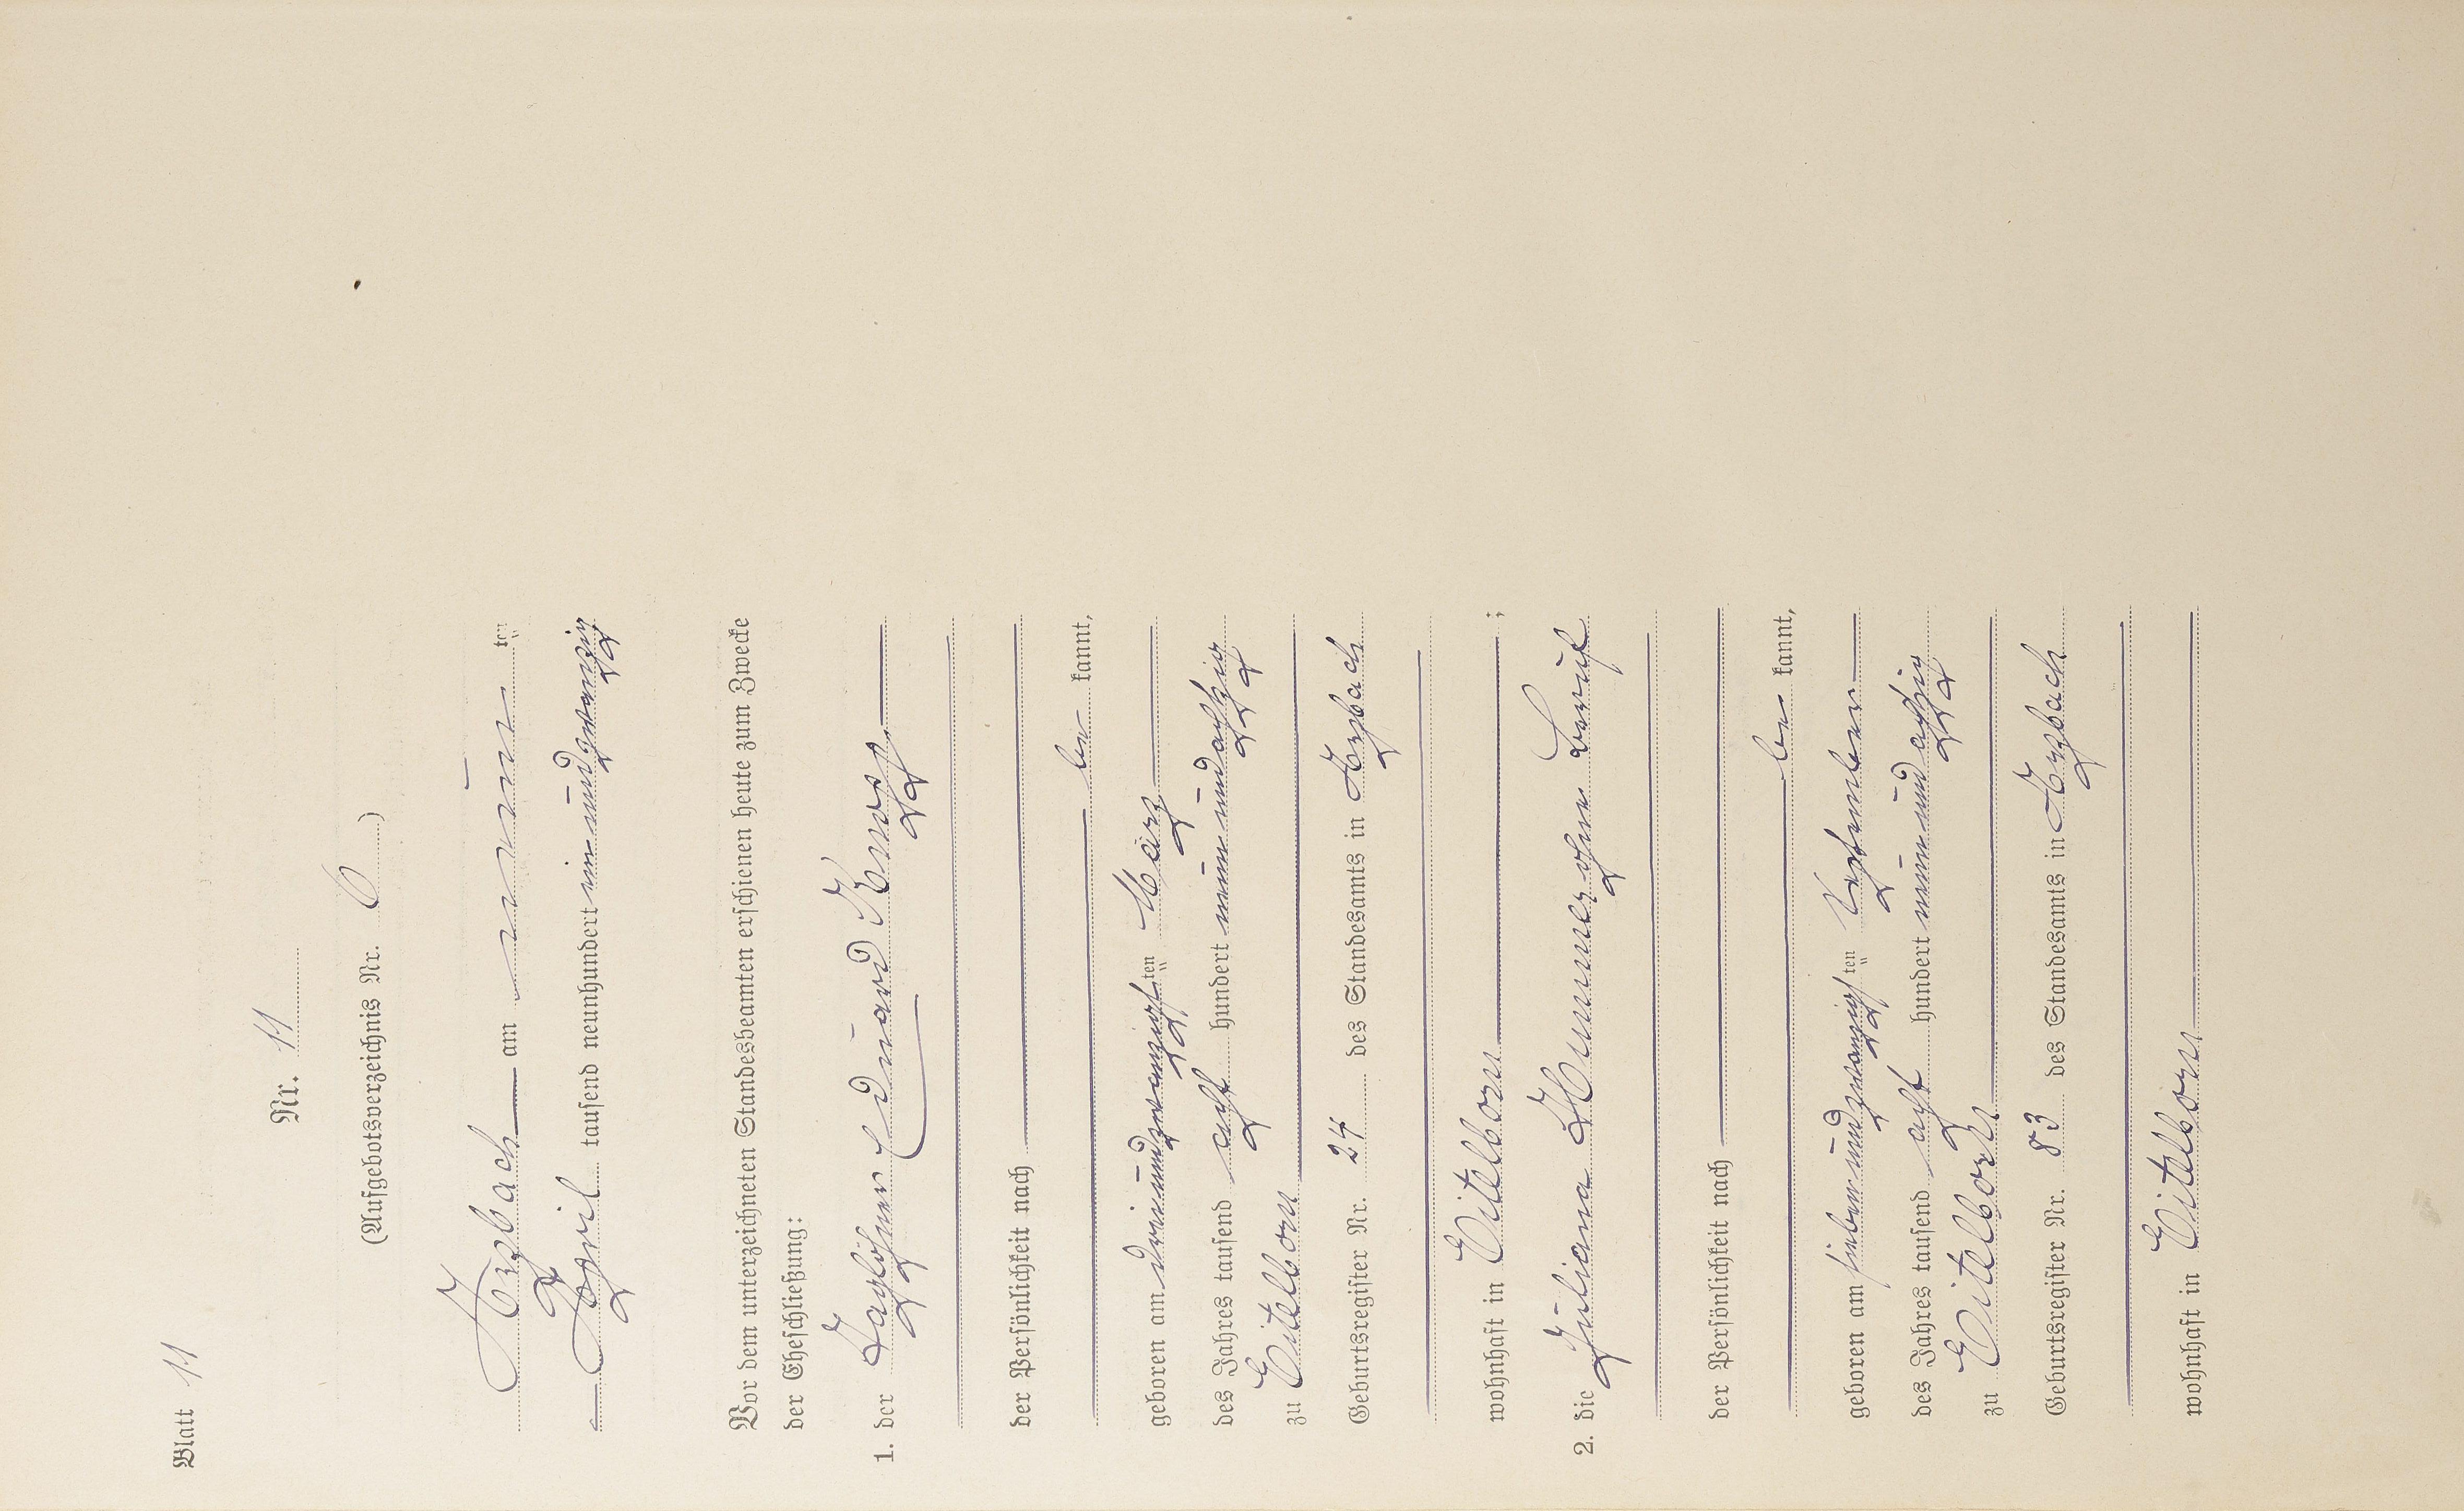 Blatt 11
Nr. 11
(Aufgebotsverzeichnis Nr. 6)
Arzbach am neun ten
April tausend neunhundert einundzwanzig
Vor dem unterzeichneten Standesbeamten erschienen heute zum Zwecke
der Eheschließung:
1. der Taglöhner Eduard Knopp
der Persönlichkeit nach
be kannt,
geboren am dreiundzwanzigsten März
des Jahres tausend acht hundert neunundachtzig
zu Eitelborn
Geburtsregister Nr. 24 des Standesamts in Arzbach
wohnhaft in Eitelborn ;
2. die Juliana Hummer ohne Beruf
der Persönlichkeit nach
be kannt,
geboren am siebenundzwanzigsten September
des Jahres tausend acht hundert neunundachtzig
zu Eitelborn
Geburtsregister Nr. 83 des Standesamts in Arzbach
wohnhaft in Eitelborn